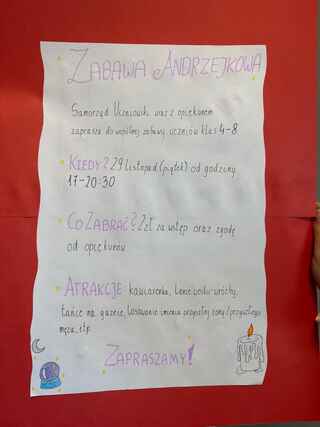 ZABAWA ANDRZEJKOWA
Samorząd Uczniowski wraz z opiekunem
zaprasza do wspólnej zabawy uczniów klas 4-8.
KIEDY? 29 listopad (piątek) od godziny
17-20:30
CO ZABRAĆ? 2zł za wstęp oraz zgodę
od opiekunów
ATRAKCJE kawiarenka, lanie wosku wróżby,
tańce na gazecie, losowanie imienia przyszłej żony/przyszłego
męża, itp.
ZAPRASZAMY!